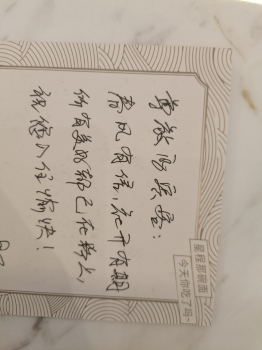 尊敬的宾客：
春风有信，花开有期
所有美好都已在路上，
祝您入住愉快！
星程那碗面
今天你吃了吗~